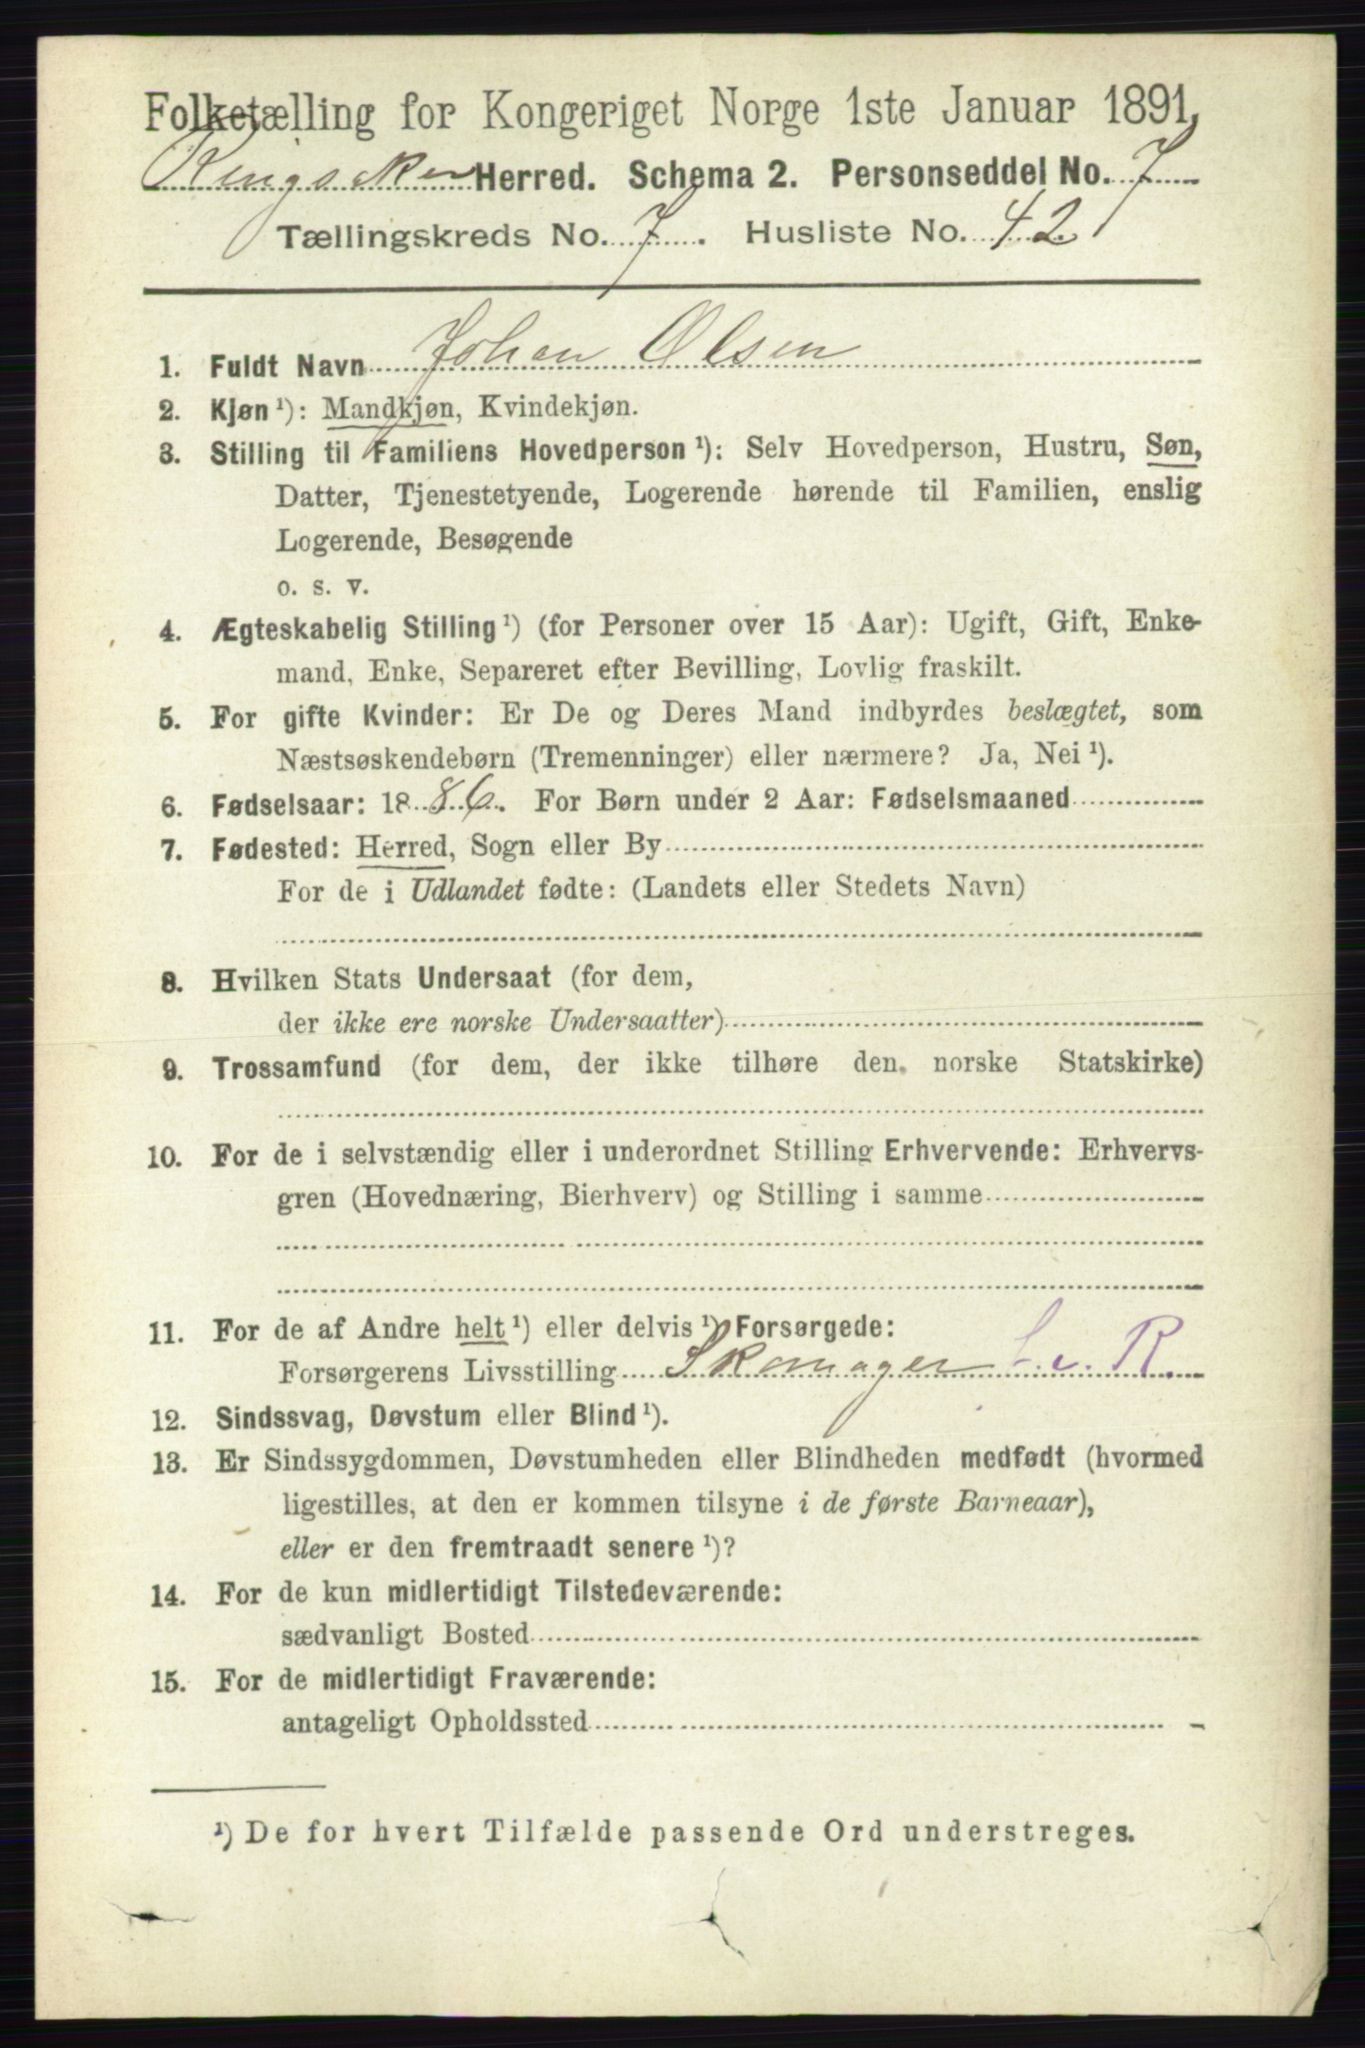 Folketælling for Kongeriget Norge 1ste Januar 1891.
Ringsaker Herred. Schema 2. Personseddel No. 7
Tællingskreds No. 7. Husliste No. 42
1. Fuldt Navn Johan Olsen
2. Kjøn ¹): Mandkjøn, Kvindekjøn.
3. Stilling til Familiens Hovedperson ¹): Selv Hovedperson, Hustru, Søn,
Datter, Tjenestetyende, Logerende hørende til Familien, enslig
Logerende, Besøgende
o. s. v.
4. Ægteskabelig Stilling ¹) (for Personer over 15 Aar): Ugift, Gift, Enke-
mand, Enke, Separeret efter Bevilling, Lovlig fraskilt.
5. For gifte Kvinder: Er De og Deres Mand indbyrdes beslægtet, som
Næstsøskendebørn (Tremenninger) eller nærmere? Ja, Nei ¹).
6. Fødselsaar: 1886. For Børn under 2 Aar: Fødselsmaaned
7. Fødested: Herred, Sogn eller By
For de i Udlandet fødte: (Landets eller Stedets Navn)
8. Hvilken Stats Undersaat (for dem,
der ikke ere norske Undersaatter)
9. Trossamfund (for dem, der ikke tilhøre den norske Statskirke)
10. For de i selvstændig eller i underordnet Stilling Erhvervende: Erhvervs-
gren (Hovednæring, Bierhverv) og Stilling i samme
11. For de af Andre helt ¹) eller delvis ¹) Forsørgede:
Forsørgerens Livsstilling Skomager R.
12. Sindssvag, Døvstum eller Blind ¹).
13. Er Sindssygdommen, Døvstumheden eller Blindheden medfødt (hvormed
ligestilles, at den er kommen tilsyne i de første Barneaar),
eller er den fremtraadt senere ¹)?
14. For de kun midlertidigt Tilstedeværende:
sædvanligt Bosted
15. For de midlertidigt Fraværende:
antageligt Opholdssted
¹) De for hvert Tilfælde passende Ord understreges.